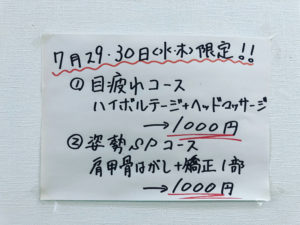 7月29.30日(水・木)限定!!
① 目疲れコース
ハイボルテージ+ヘッドマッサージ
→1000円
② 姿勢SPコース
肩甲骨はがし+矯正1部
→1000円